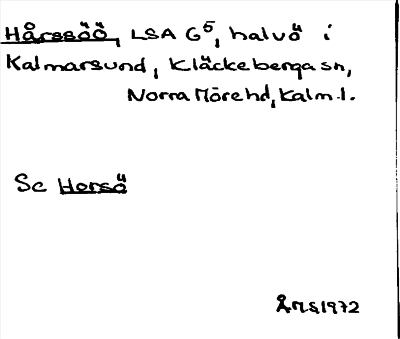 Hårssöö, LSA G5, halvö i
Kalmarsund, Kläckeberga sn,
Norra Möre hd, Kalm. l.
Se Horsö
ÅMS 1972